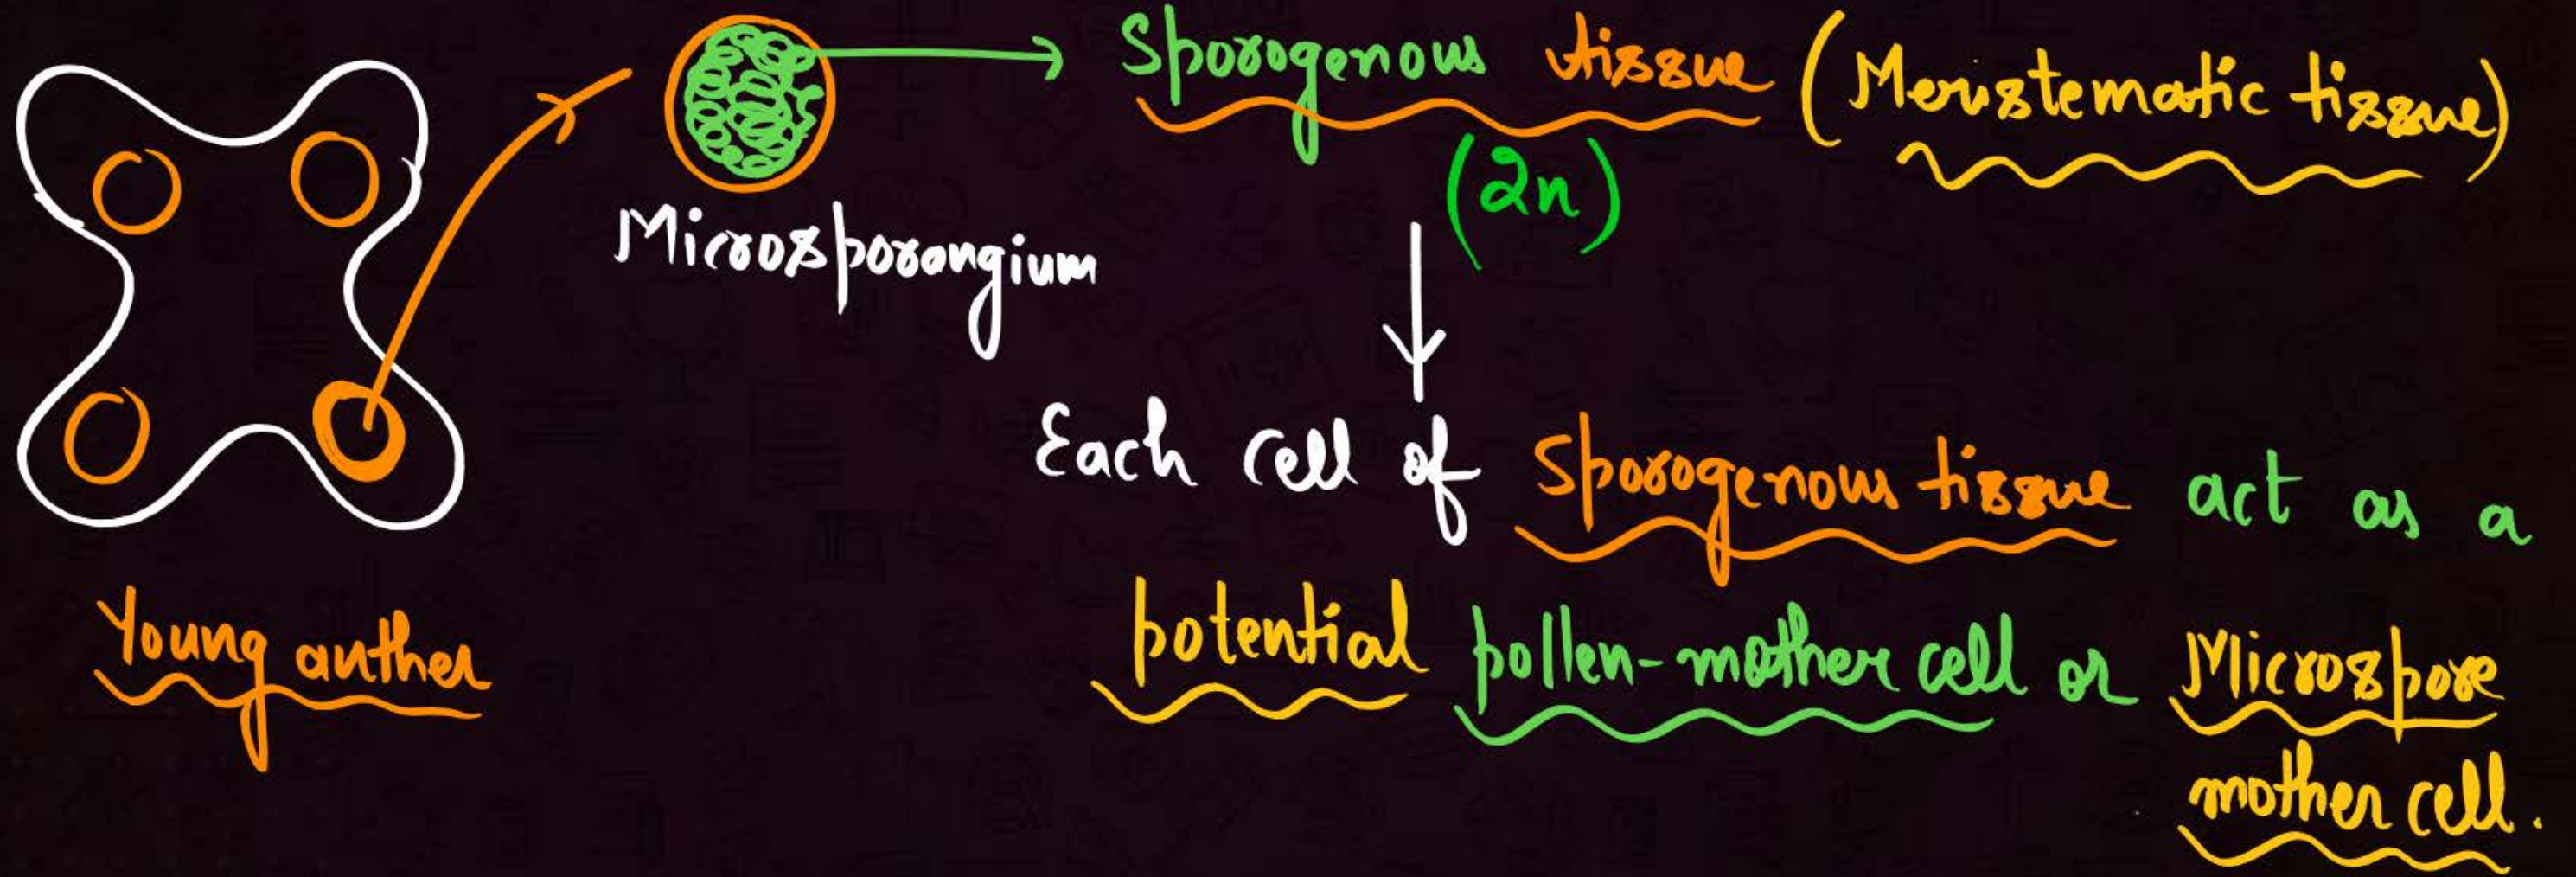 Sporogenous tissue (Meristematic tissue)
(2n)
Microsporangium
Each cell of Sporogenous tissue act as a
potential pollen-mother cell or Microspore
mother cell.
Young anther